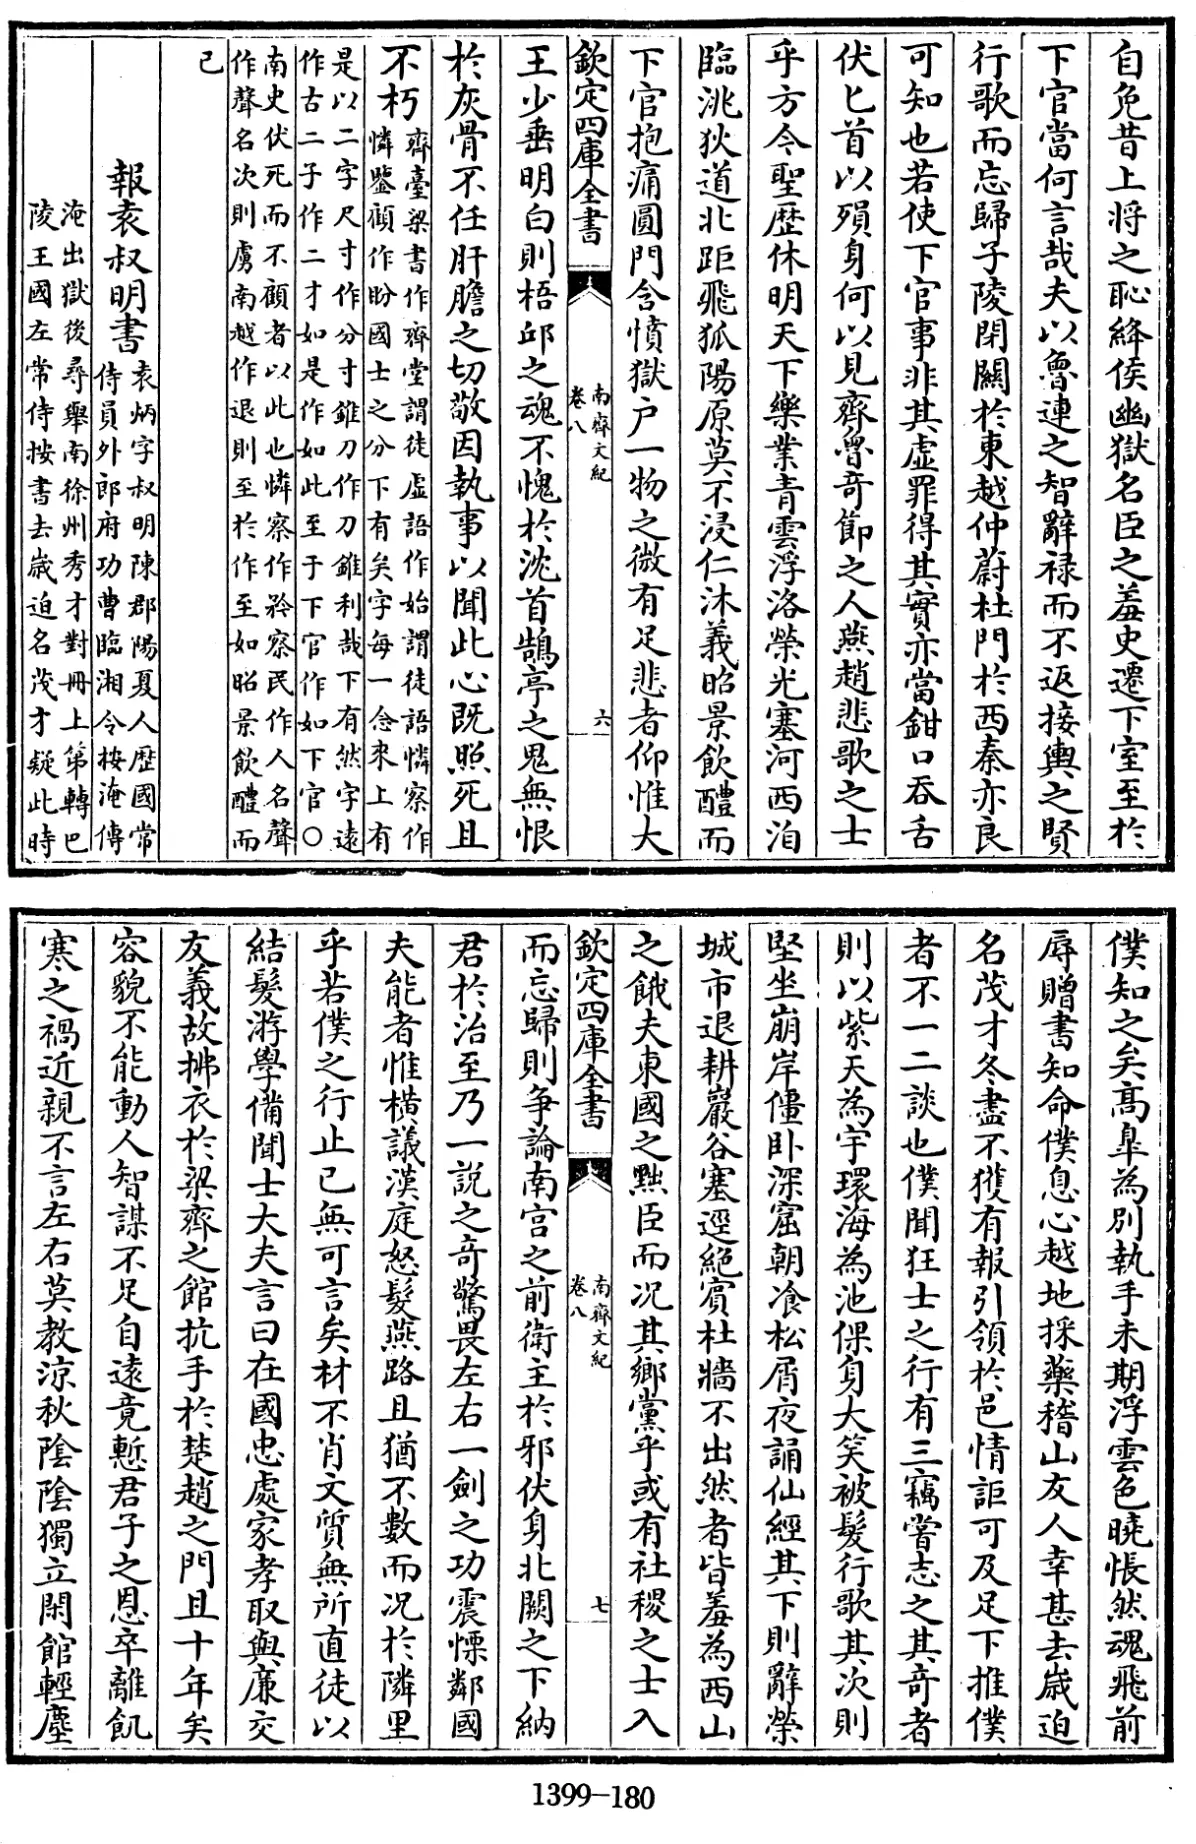 自免昔上將之恥絳侯幽獄名臣之羞史遷下室至於
下官當何言哉夫以魯連之智辭祿而不返接輿之賢
行歌而忘歸子陵閉關於東越仲蔚杜門於西秦亦良
可知也若使下官事非其虛罪得其實亦當鉗口吞舌
伏匕首以殞身何以見齊魯奇節之人燕趙悲歌之士
乎方今聖歷休明天下樂業青雲浮洛榮光塞河西洎
臨洮狄道北距飛狐陽原莫不浸仁沐義昭景飲醴而
下官抱痛圓門含憤獄户一物之微有足悲者仰惟大
欽定四庫全書
南齊文紀
卷八
六
王少垂明白則梧邱之魂不愧於沈首鵠亭之鬼無恨
於灰骨不任肝膽之切敬因執事以聞此心既照死且
不朽
齊臺梁書作齊堂謂徒虛語作始謂徒語憐察作
憐鑒顧作盼國士之分下有矣字每一念來上有
是以二字尺寸作分寸錐刀作刀錐利哉下有然字遠
作古二子作二才如是作如此至于下官作如下官○
南史伏死而不顧者以此也憐察作矜察民作人名聲
作聲名次則虜南越作退則至於作至如昭景飲醴而
已
報袁叔明書
袁炳字叔明陳郡陽夏人歷國常
侍員外郎府功曹臨湘令按淹傳
淹出獄後尋舉南徐州秀才對冊上第轉巴
陵王國左常侍按書去歲迫名茂才疑此時
僕知之矣高臯為別執手未期浮雲色曉悵然魂飛前
辱贈書知命僕息心越地採藥稽山友人幸甚去歲迫
名茂才冬盡不獲有報引領於邑情詎可及足下推僕
者不一二談也僕聞狂士之行有三竊嘗志之其奇者
則以紫天為宇環海為池倮身大笑被髮行歌其次則
堅坐崩岸僵卧深窟朝飡松屑夜誦仙經其下則辭榮
城市退耕巖谷塞逕絕賓杜牆不出然者皆羞為西山
之餓夫東國之黜臣而况其鄉黨乎或有社稷之士入
欽定四庫全書
南齊文紀
卷八
七
而忘歸則爭論南宫之前衛主於邪伏身北闕之下納
君於治至乃一說之奇驚畏左右一劍之功震慄鄰國
夫能者惟横議漢庭怒髮燕路且猶不數而况於隣里
乎若僕之行止已無可言矣材不肖文質無所直徒以
結髮游學備聞士大夫言曰在國忠處家孝取與亷交
友義故拂衣於梁齊之館抗手於楚趙之門且十年矣
容貌不能動人智謀不足自遠竟慙君子之恩卒離飢
寒之禍近親不言左右莫教涼秋陰陰獨立閑館輕塵
1399-180